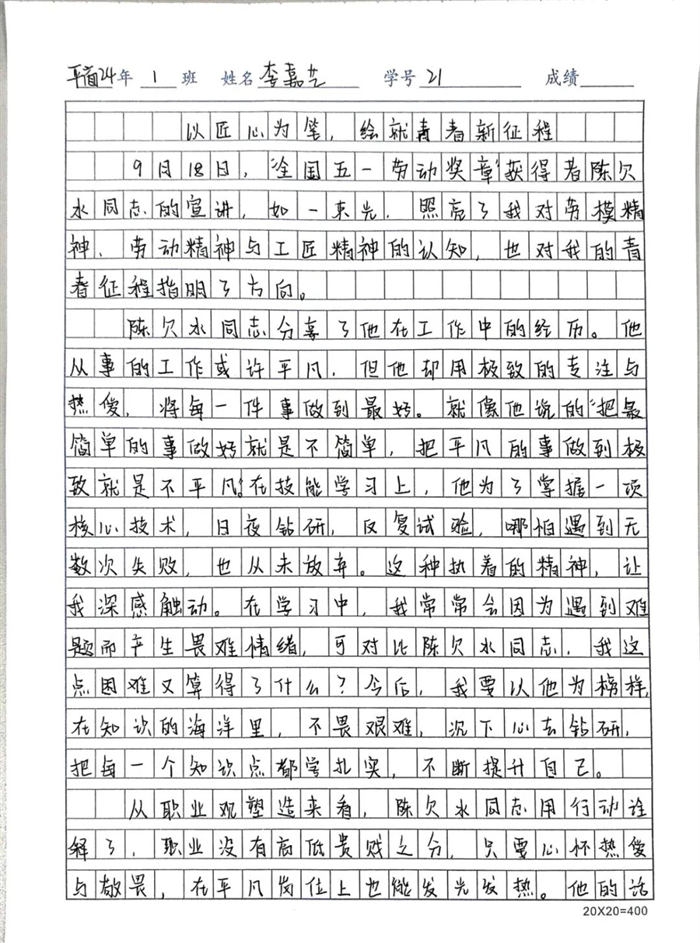 平面24年 1 班 姓名 李嘉艺 学号 21 成绩
以匠心为笔，绘就青春新征程
9月18日，“全国五一劳动奖章”获得者陈欠
水同志的宣讲，如一束光，照亮了我对劳模精
神、劳动精神与工匠精神的认知，也对我的青
春征程指明了方向。
陈欠水同志分享了他在工作中的经历。他
从事的工作或许平凡，但他却用极致的专注与
热爱，将每一件事做到最好。就像他说的“把最
简单的事做好就是不简单，把平凡的事做到极
致就是不平凡。”在技能学习上，他为了掌握一项
核心技术，日夜钻研，反复试验，哪怕遇到无
数次失败，也从未放弃。这种执着的精神，让
我深感触动。在学习中，我常常会因为遇到难
题而产生畏难情绪，可对比陈欠水同志，我这
点困难又算得了什么？今后，我要以他为榜样，
在知识的海洋里，不畏艰难，沉下心去钻研，
把每一个知识点都学扎实，不断提升自己。
从职业观塑造来看，陈欠水同志用行动诠
释了，职业没有高低贵贱之分，只要心怀热爱
与敬畏，在平凡岗位上也能发光发热。他的话
20X20=400